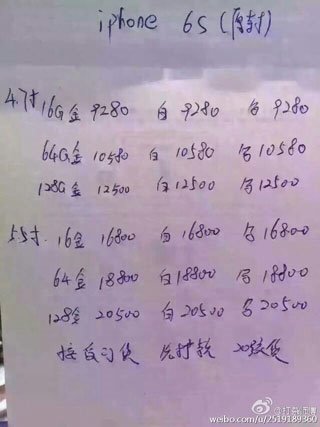 iphone 6S (原封)
4.7寸 16G金 9280 白 9280 9280
64G金 10580 白 10580 10580
128G金 12500 白 12500 12500
5.5寸. 16金 16800 白 16800 16800
64金 18800 白 18800 18800
128金 20500 白 20500 20500
接自订货 先打款
weibo.com/u/2519189360